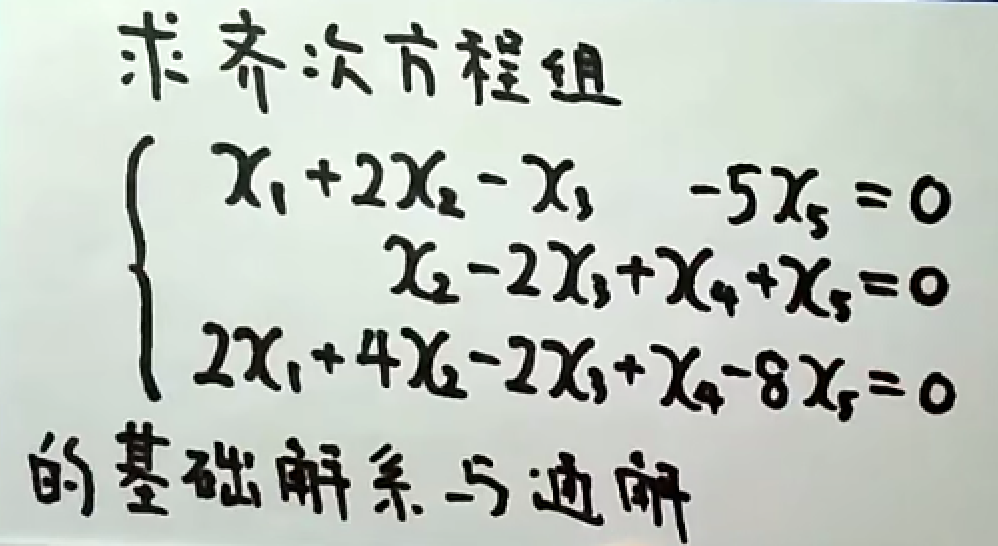 求齐次方程组
x₁+2x₂-x₃ -5x₅=0
x₂-2x₃+x₄+x₅=0
2x₁+4x₂-2x₃+x₄-8x₅=0
的基础解系与通解